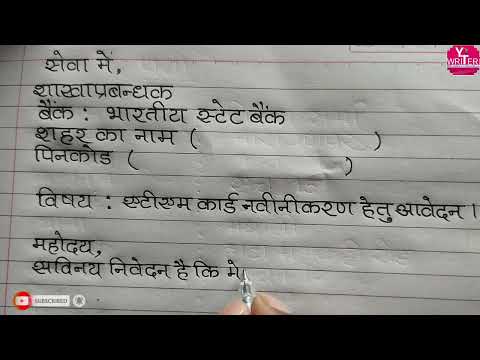 Y
WRITER
सेवा में,
शाखाप्रबन्धक
बैंक : भारतीय स्टेट बैंक
शहर का नाम ( )
पिनकोड ( )
विषय : एटीएम कार्ड नवीनीकरण हेतु आवेदन ।
महोदय,
सविनय निवेदन है कि मे
SUBSCRIBED